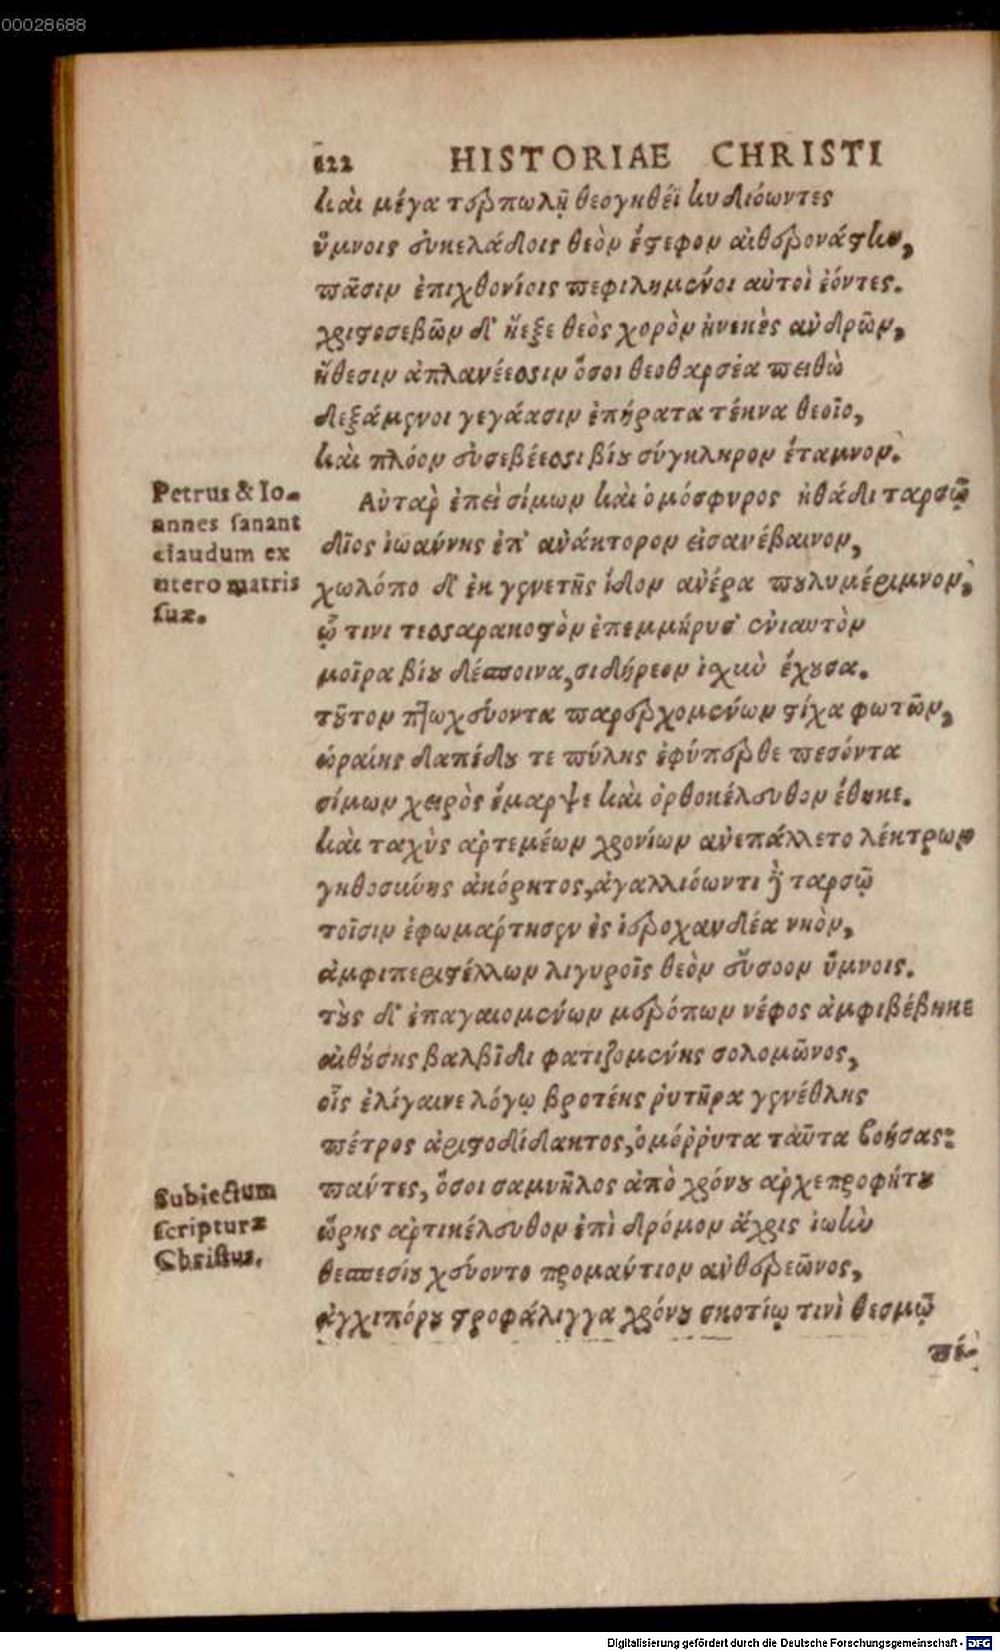 00028688
622 HISTORIAE CHRISTI
καὶ μέγα τερπωλῇ θεογηθέϊ κυδιόωντες
ὕμνοις εὐκελάδοις θεὸν ἔστεφον αἰθερονάστην,
πᾶσιν ἐπιχθονίοις πεφιλημένοι αὐτοὶ ἐόντες.
χριστοσεβῶν δ' ἤεξε θεὸς χορὸν ἠνεκὲς ἀνδρῶν,
ἤθεσιν ἀπλανέεσσιν ὅσοι θεοθαρσέα πειθὼ
δεξάμενοι γεγάασιν ἐπήρατα τέκνα θεοῖο,
καὶ πλόον εὐσεβέεσσι βίου σύγκληρον ἔταμνον.
Petrus & Io-
annes sanant
claudum ex
utero matris
suæ.
Αὐτὰρ ἐπεὶ σίμων καὶ ὁμόσφυρος ἠθάδι ταρσῷ
δῖος ἰωάννης ἐπ' ἀνάκτορον εἰσανέβαινον,
χωλόπο δ' ἐκ γενετῆς ἴδον ἀνέρα πουλυμέριμνον,
ᾧ τινι τεσσαρακοστὸν ἐπεμμήρυσ' ἐνιαυτὸν
μοῖρα βίου δέσποινα, σιδήρεον ἰσχὺ ἔχουσα.
τοῦτον πτωχεύοντα παρερχομένων στίχα φωτῶν,
ὡραίης δαπέδου τε πύλης ἐφύπερθε πεσόντα
σίμων χειρὸς ἔμαρψε καὶ ὀρθοκέλευθον ἔθηκε.
καὶ ταχὺς ἀρτεμέων χρονίων ἀνεπάλλετο λέκτρων
γηθοσύνης ἀκόρητος, ἀγαλλιόωντι δὲ ταρσῷ
τοῖσιν ἐφωμάρτησεν ἐς ἱεροχανδέα νηὸν,
ἀμφιπεριστέλλων λιγυροῖς θεὸν εὔσοον ὕμνοις.
τοὺς δ' ἐπαγαιομένων μερόπων νέφος ἀμφιβέβηκε
αἰθούσης βαλβῖδι φατιζομένης σολομῶνος,
οἷς ἐλίγαινε λόγῳ βροτέης ῥυτῆρα γενέθλης
πέτρος ἀριστοδίδακτος, ὁμόῤῥυτα ταῦτα βοήσας:
Subiectum
scripturæ
Christus.
πάντες, ὅσοι σαμυῆλος ἀπὸ χρόνου ἀρχεπροφήτου
ὥρης ἀρτικέλευθον ἐπὶ δρόμον ἄχρις ἰωὴν
θεσπεσίου χεύοντο προμάντιον ἀνθερεῶνος,
ἀγχιπόρου στροφάλιγγα χρόνου σκοτίῳ τινὶ θεσμῷ
πέ-
Digitalisierung gefördert durch die Deutsche Forschungsgemeinschaft - DFG